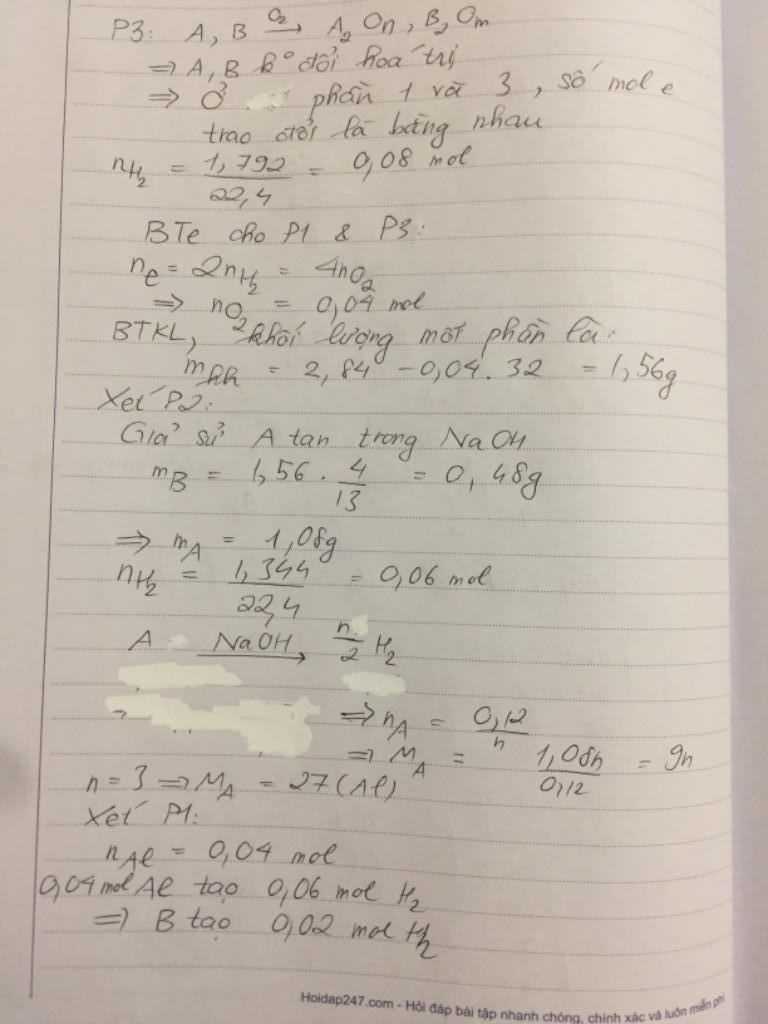 P3: A, B →(O₂) A₂On, B₂Om
⇒ A, B k° đổi hoá trị
⇒ Ở phần 1 và 3, số mol e
trao đổi là bằng nhau
nH₂ = 1,792/22,4 = 0,08 mol
BTe cho P1 & P3:
ne = 2nH₂ = 4nO₂
⇒ nO₂ = 0,04 mol
BTKL, khối lượng một phần là:
mhh = 2,84 - 0,04.32 = 1,56g
Xét P2:
Giả sử A tan trong NaOH
mB = 1,56 . 4/13 = 0,48g
⇒ mA = 1,08g
nH₂ = 1,344/22,4 = 0,06 mol
A →(NaOH) n/2 H₂
⇒ nA = 0,12/n
⇒ MA = 1,08n/0,12 = 9n
n = 3 ⇒ MA = 27 (Al)
Xét P1:
nAl = 0,04 mol
0,04 mol Al tạo 0,06 mol H₂
⇒ B tạo 0,02 mol H₂
Hoidap247.com - Hỏi đáp bài tập nhanh chóng, chính xác và luôn miễn phí